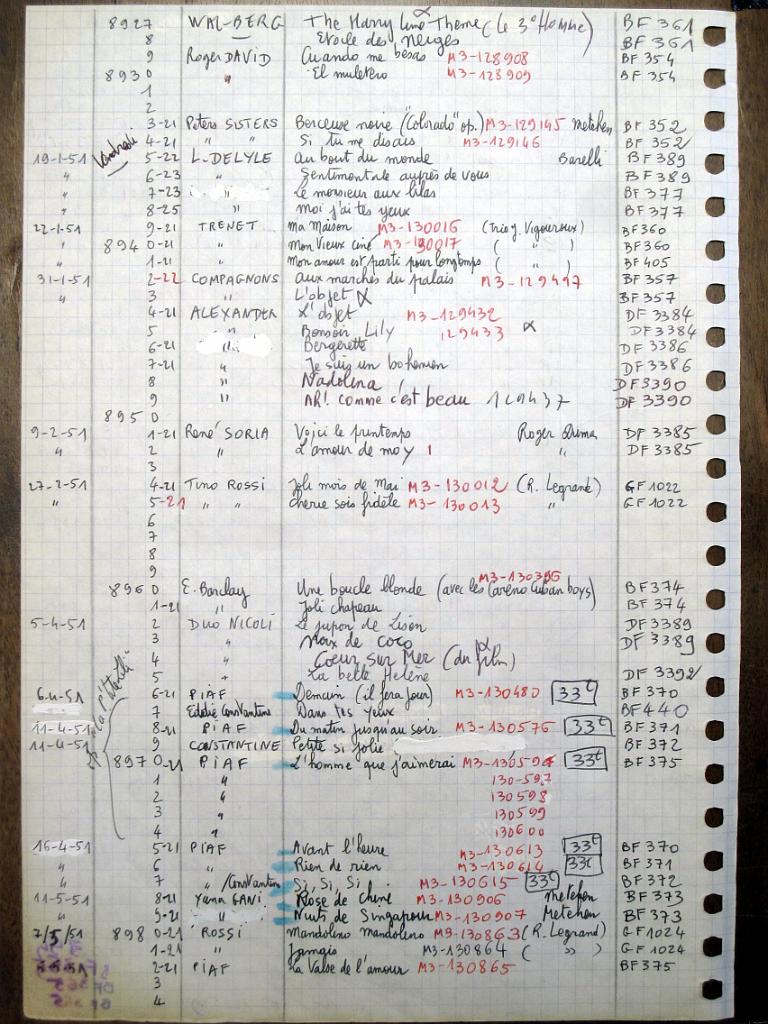 8927 WAL-BERG The Harry Lime Theme (Le 3e Homme) BF 361
8 Etoile des neiges BF 361
9 Roger DAVID Cuando me besas M3-128908 BF 354
8930 " El muletero M3-128909 BF 354
1
2
3-21 Peters SISTERS Berceuse noire ("Colorado" op.) M3-129145 Metehen BF 352
4-21 " " Si tu me disais M3-129146 BF 352
19-1-51 Vendredi 5-22 L. DELYLE Au bout du monde Barelli BF 389
" 6-23 " Sentimentale auprès de vous BF 389
" 7-23 " Le monsieur aux lilas BF 377
" 8-25 " Moi j'ai tes yeux BF 377
22-1-51 9-21 TRENET Ma Maison M3-130016 (trio J. Vigouroux) BF 360
" 8940-21 " Mon Vieux ciné M3-130017 ( " ) BF 360
" 1-21 " Mon amour est parti pour longtemps ( " ) BF 405
31-1-51 2-22 COMPAGNONS Aux marches du palais M3-129497 BF 357
" 3 " L'objet α BF 357
4-21 ALEXANDER L'objet M3-129432 DF 3384
5 " Bonsoir Lily 129433 α DF 3384
6-21 Bergerette DF 3386
7-21 " Je suis un bohemien DF 3386
8 " Nadolina DF 3390
9 " AR! comme c'est beau 129437 DF 3390
8950
9-2-51 1-21 René SORIA Voici le printemps Roger Duma DF 3385
" 2 " L'amour de moy 1 " DF 3385
3
27-2-51 4-21 Tino ROSSI Joli mois de Mai M3-130012 (R. Legrand) GF 1022
" 5-21 " " Cherie sois fidèle M3-130013 " GF 1022
6
7
8
9 M3-130396
8960 E. Barclay Une boucle blonde (avec les Careno Cuban boys) BF 374
1-21 " Joli chapeau BF 374
5-4-51 2 DUO NICOLI Le jupon de Lison DF 3389
3 " Noix de coco DF 3389
4 " Coeur sur Mer (du film) α
5 " La belle Hélène DF 3392
6.4-51 6-21 PIAF Demain (il fera jour) M3-130480 33t BF 370
7 Eddie Constantine Dans tes yeux BF 440
11-4-51 8-21 PIAF Du matin jusqu'au soir M3-130576 33t BF 371
11-4-51 9 CONSTANTINE Petite si jolie BF 372
8970-21 PIAF L'homme que j'aimerai M3-130596 33t BF 375
1 " 130-597
2 " 130598
3 " 130599
4 " 130600
16-4-51 5-21 PIAF Avant l'heure M3-130613 33t BF 370
" 6 " Rien de rien M3-130614 33t BF 371
" 7 " /Constantine Si, Si, Si M3-130615 33t BF 372
11-5-51 8-21 Yana GANI Rose de Chine M3-130906 Metehen BF 373
" 9-21 " Nuits de Singapour M3-130907 Metehen BF 373
7/5/51 8980-21 ROSSI Mandolino Mandolino M3-130863 (R. Legrand) GF 1024
1-21 " Jamais M3-130864 ( " ) GF 1024
2-21 PIAF La Valse de l'amour M3-130865 BF 375
3
4